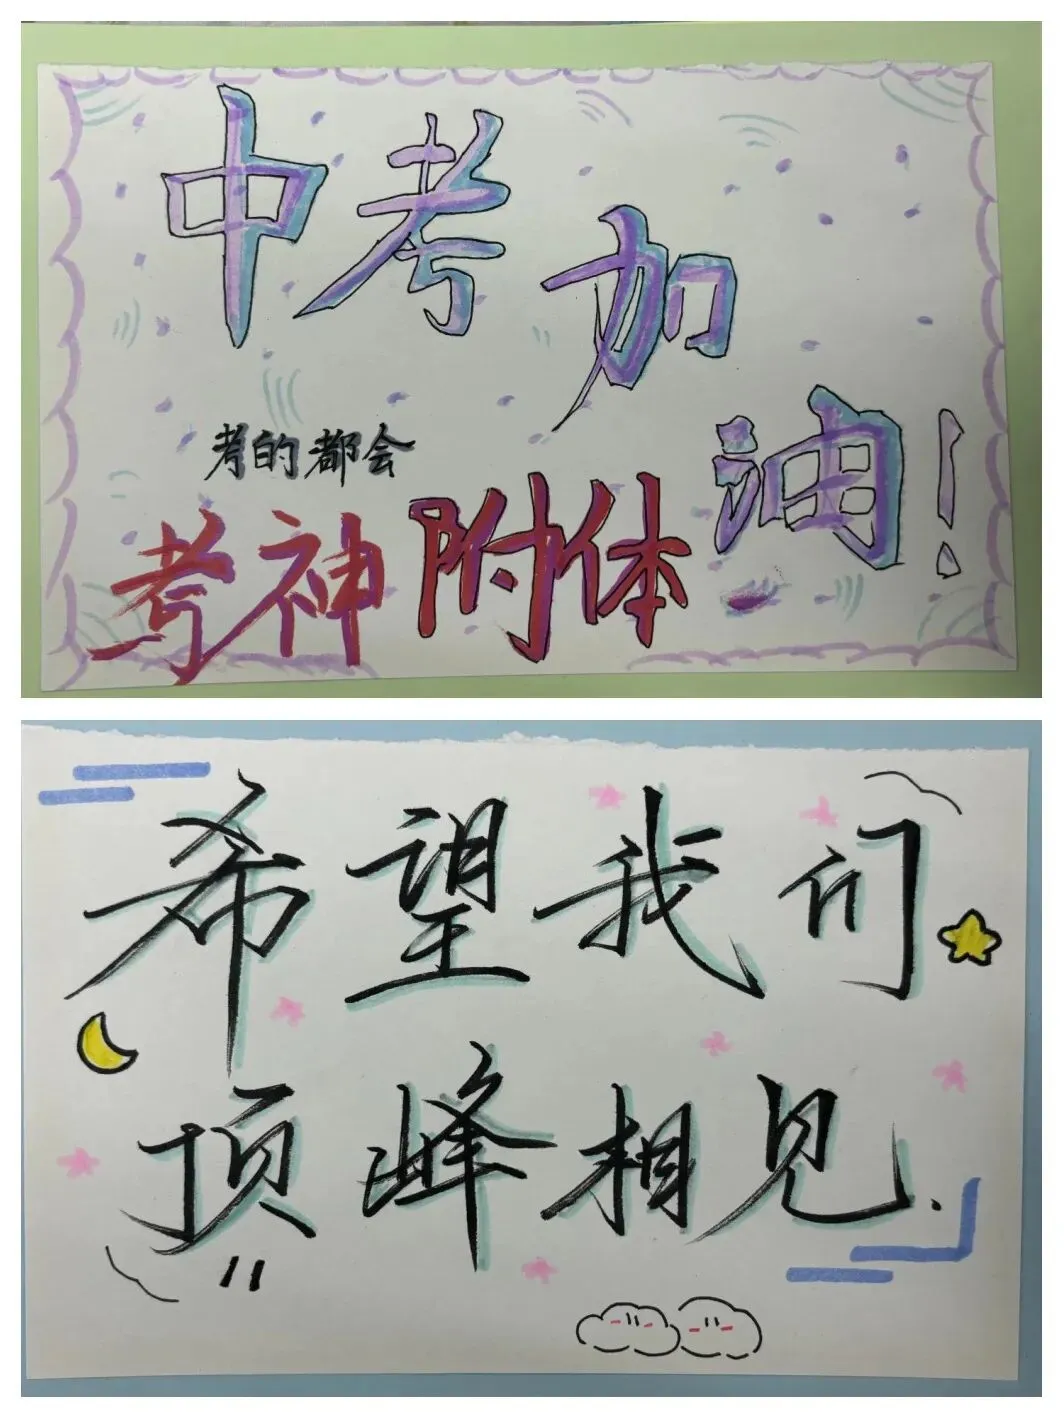 中考加油！
考的都会
考神附体
希望我们
顶峰相见.